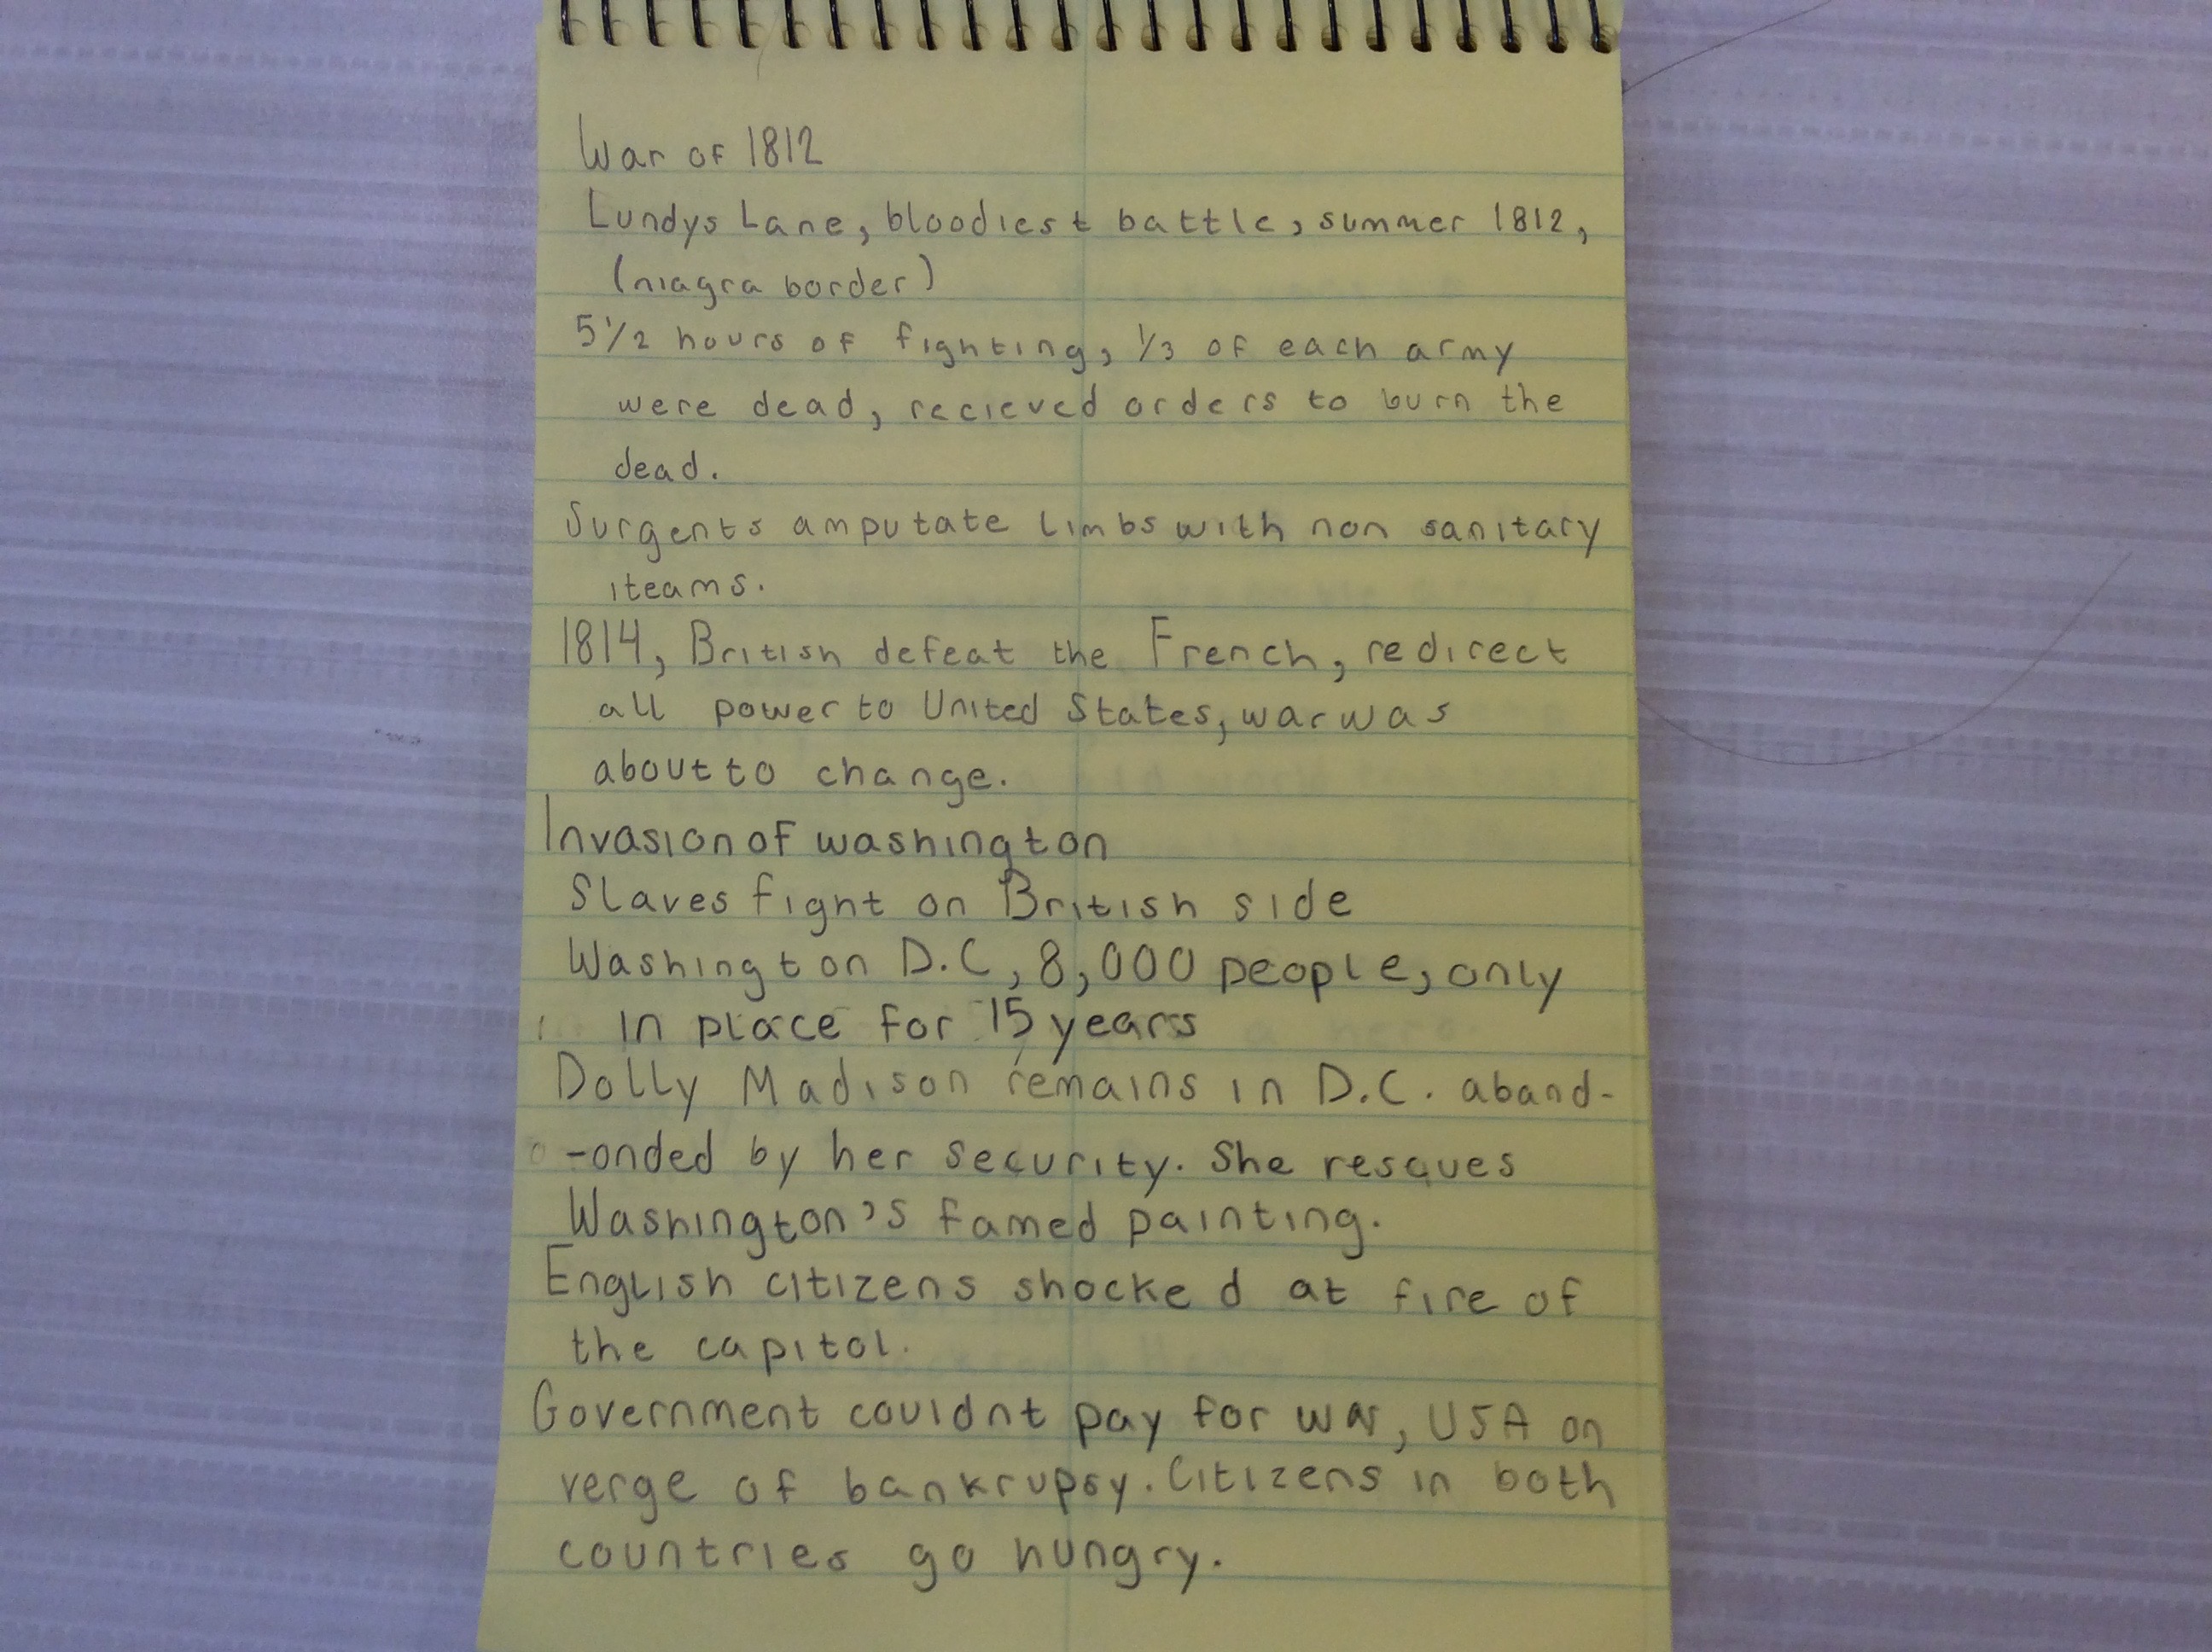 War of 1812
Lundys Lane, bloodiest battle, summer 1812,
(niagra border)
5 1/2 hours of fighting, 1/3 of each army
were dead, recieved orders to burn the
dead.
Surgents amputate limbs with non sanitary
iteams.
1814, British defeat the French, redirect
all power to United States, war was
about to change.
Invasion of washington
Slaves fight on British side
Washington D.C, 8,000 people, only
in place for 15 years
Dolly Madison remains in D.C. aband-
-onded by her security. She resques
Washington's famed painting.
English citizens shocked at fire of
the capitol.
Government couldnt pay for war, USA on
verge of bankrupsy. Citizens in both
countries go hungry.